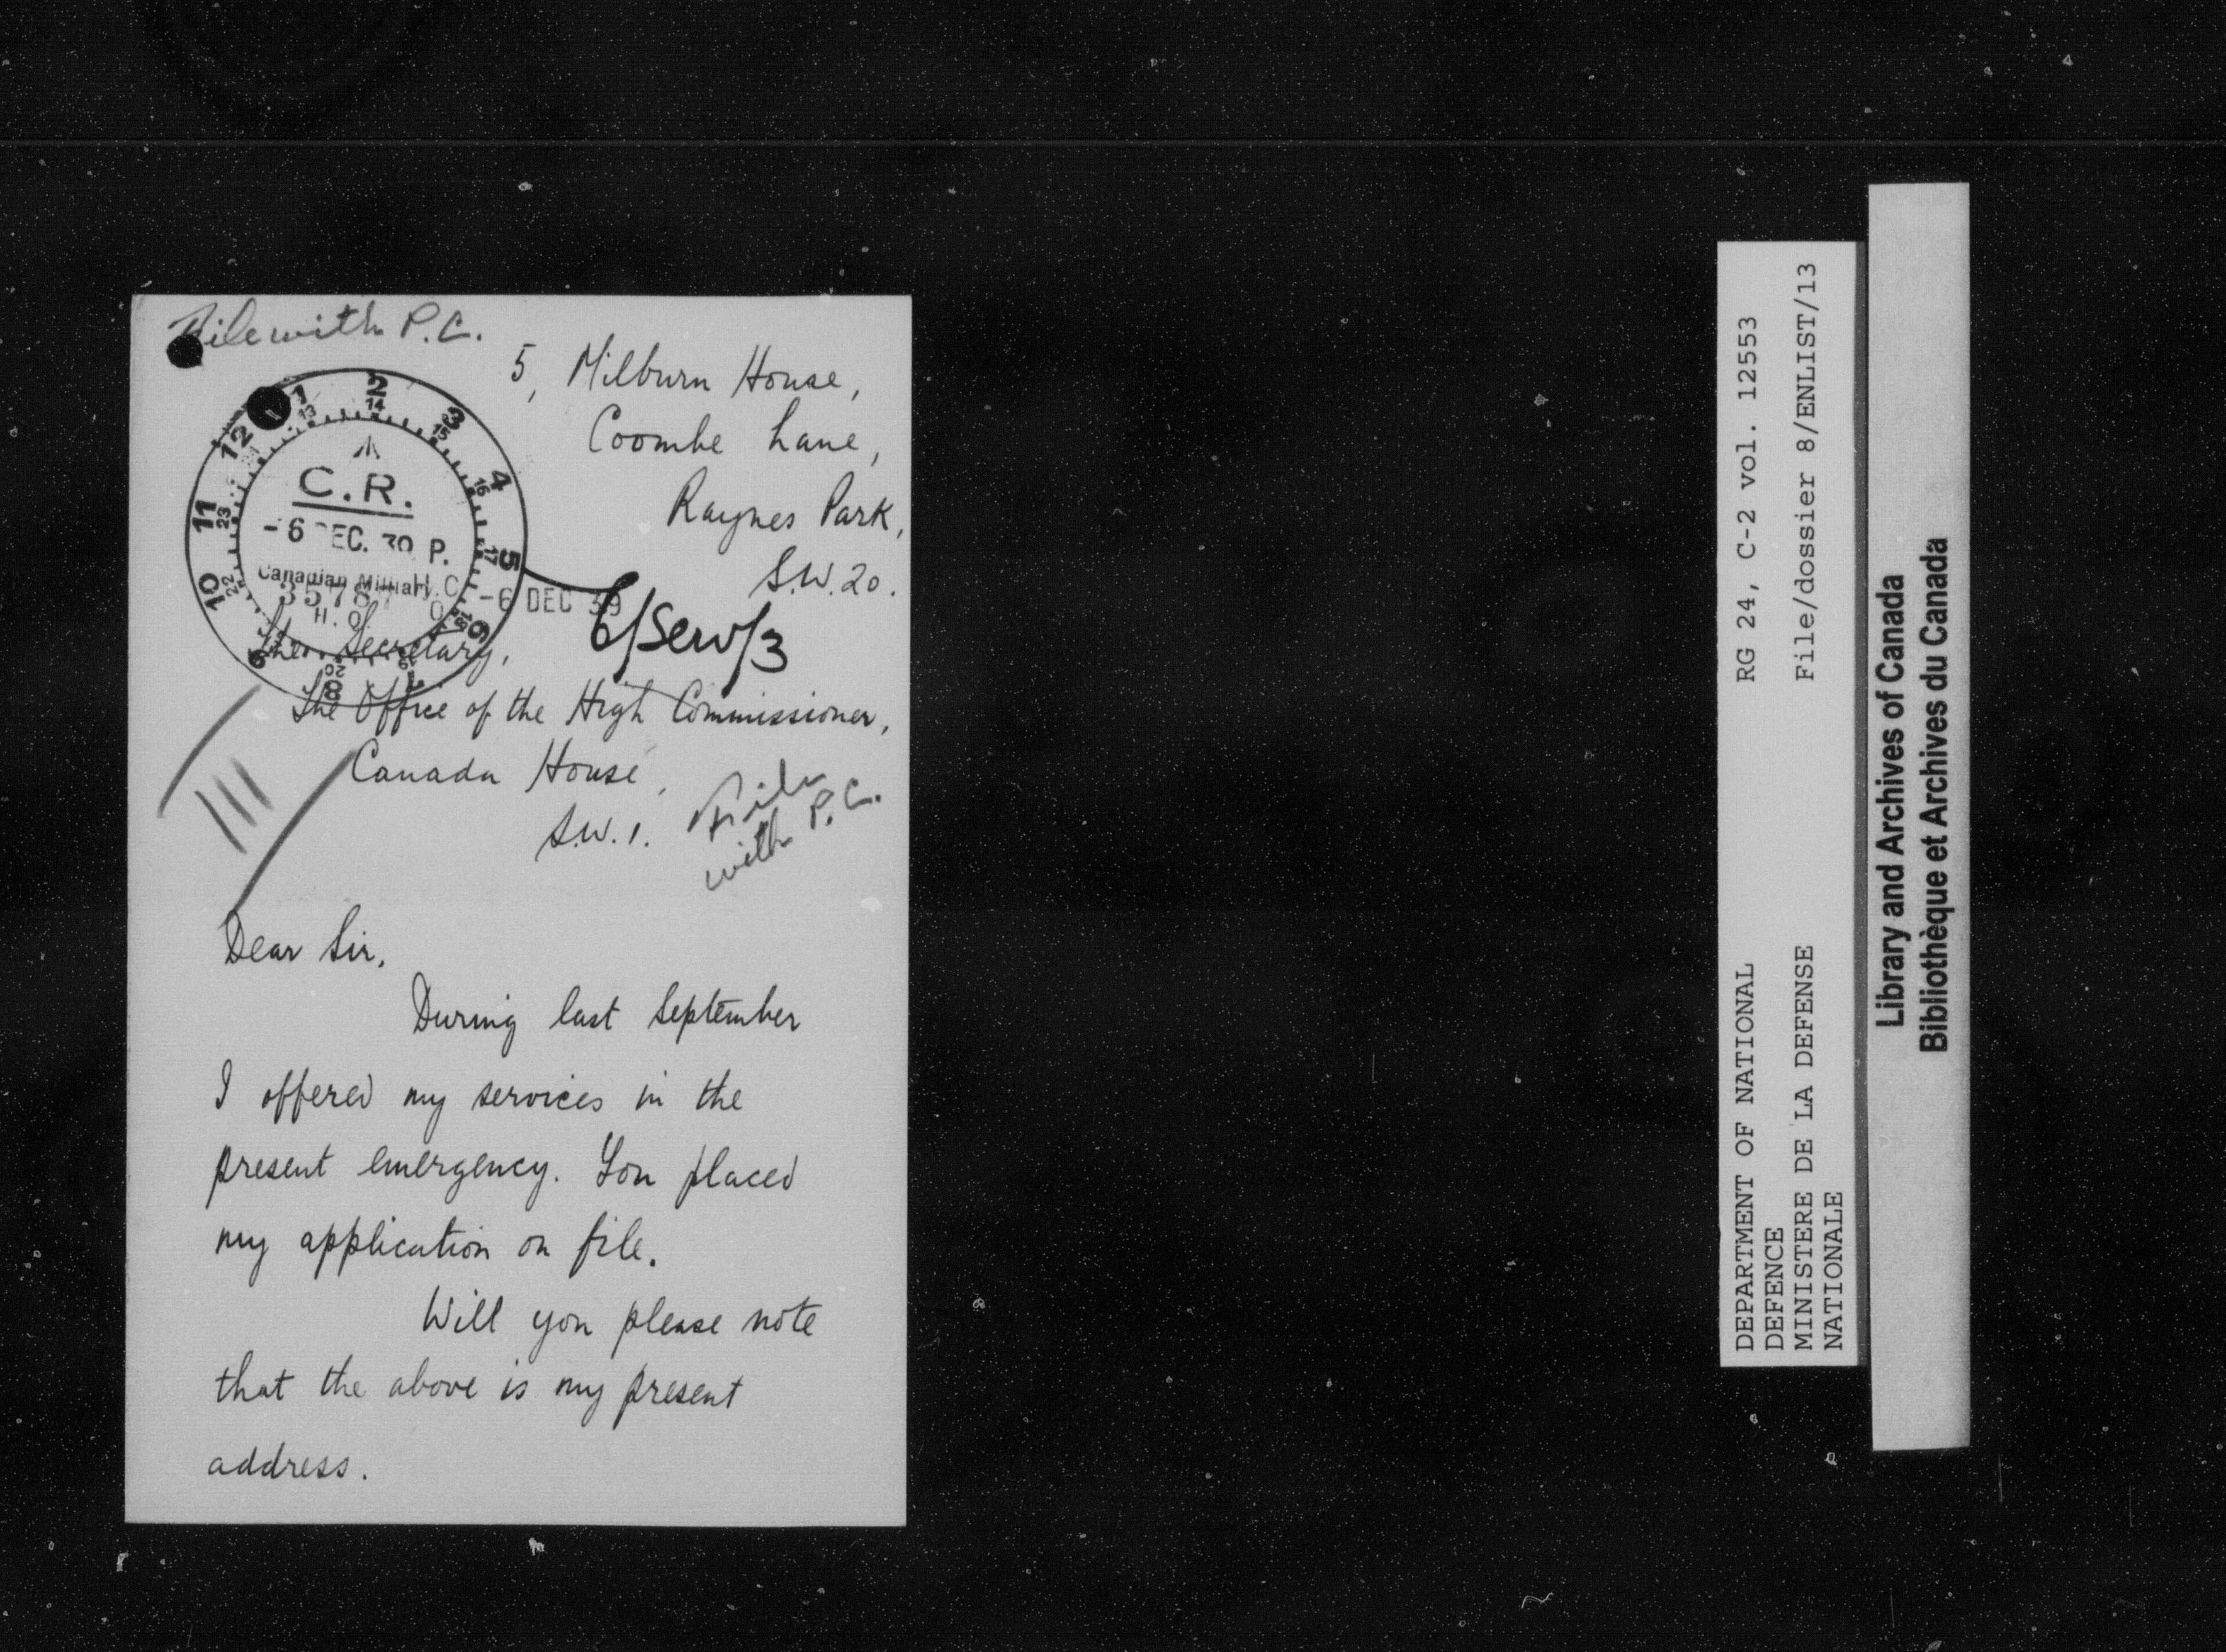 File with P.C.
5, Milburn House,
Coombe Lane,
Raynes Park,
S.W.20.
1 2 3 4 5 6 7 8 9 10 11 12
13 14 15 16 17 18 19 20 22 23
C.R.
-6 DEC. 39 P.
Canadian Military H.Q.
3578
-6 DEC 39
6/Serv/3
The Secretary,
The Office of the High Commissioner,
Canada House,
S.W.1.
File
with P.C.
Dear Sir,
During last September
I offered my services in the
present emergency. You placed
my application on file.
Will you please note
that the above is my present
address.
RG 24, C-2 vol. 12553
File/dossier 8/ENLIST/13
DEPARTMENT OF NATIONAL
DEFENCE
MINISTERE DE LA DEFENSE
NATIONALE
Library and Archives of Canada
Bibliothèque et Archives du Canada